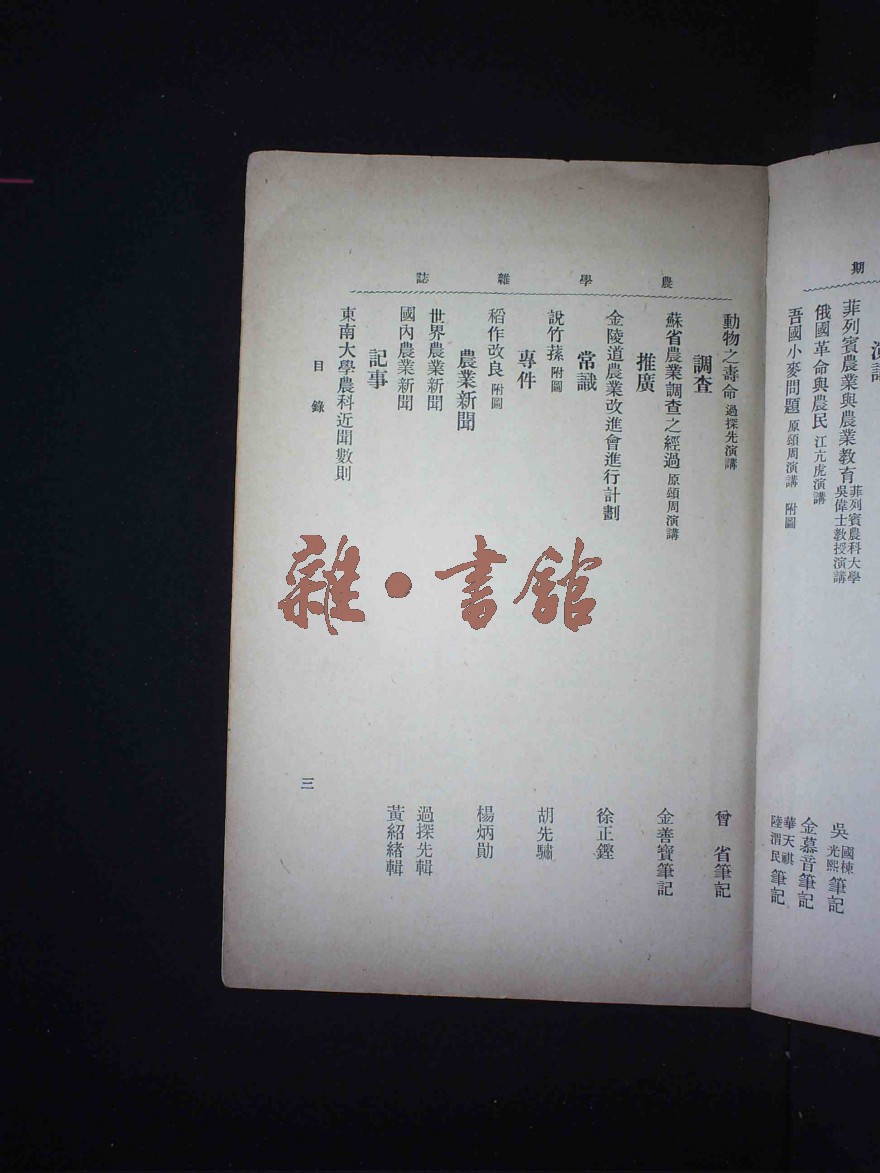 期
演講
菲列賓農業與農業教育 菲列賓農科大學吳偉士教授演講 吳國棟光熙筆記
俄國革命與農民 江亢虎演講 金慕音筆記
吾國小麥問題 原頌周演講 附圖 華天祺陸渭民筆記
農學雜誌
動物之壽命 過探先演講 曾省筆記
調查
蘇省農業調查之經過 原頌周演講 金善寶筆記
推廣
金陵道農業改進會進行計劃 徐正鏗
常識
說竹蓀 附圖 胡先驌
專件
稻作改良 附圖 楊炳勛
農業新聞
世界農業新聞 過探先輯
國內農業新聞 黃紹緒輯
記事
東南大學農科近聞數則
目錄
三
雜·書館